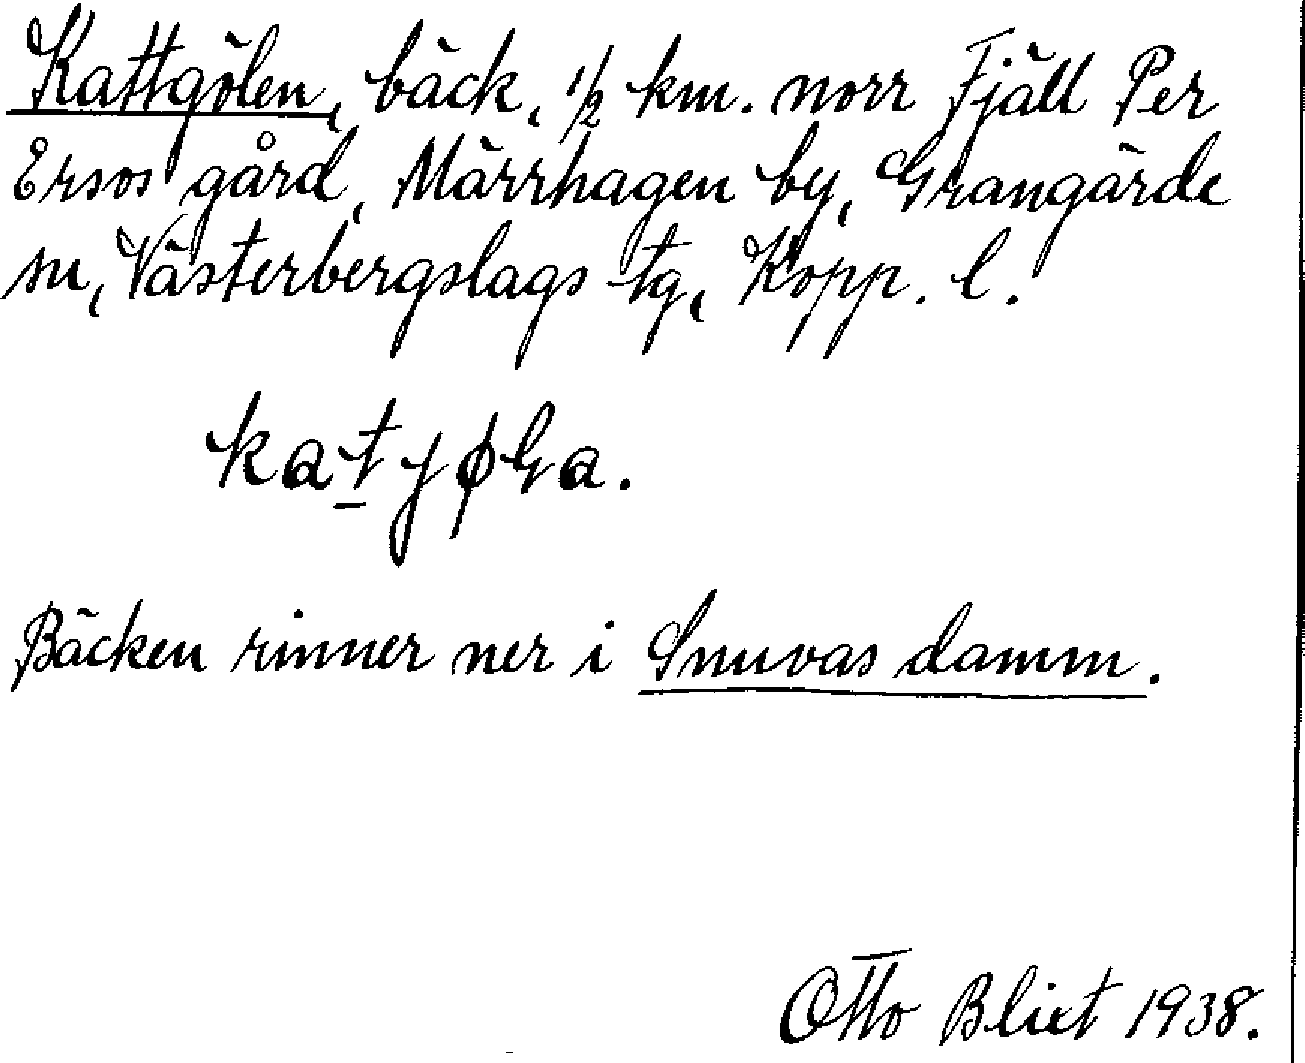 Kattgölen, bäck, 1/2 km. norr Fjäll Per
Ersos gård, Märrhagen by, Grangärde
sn, Västerbergslags tg, Kopp. l.
Bäcken rinner ner i Snuvas damm.
Otto Blixt 1938.